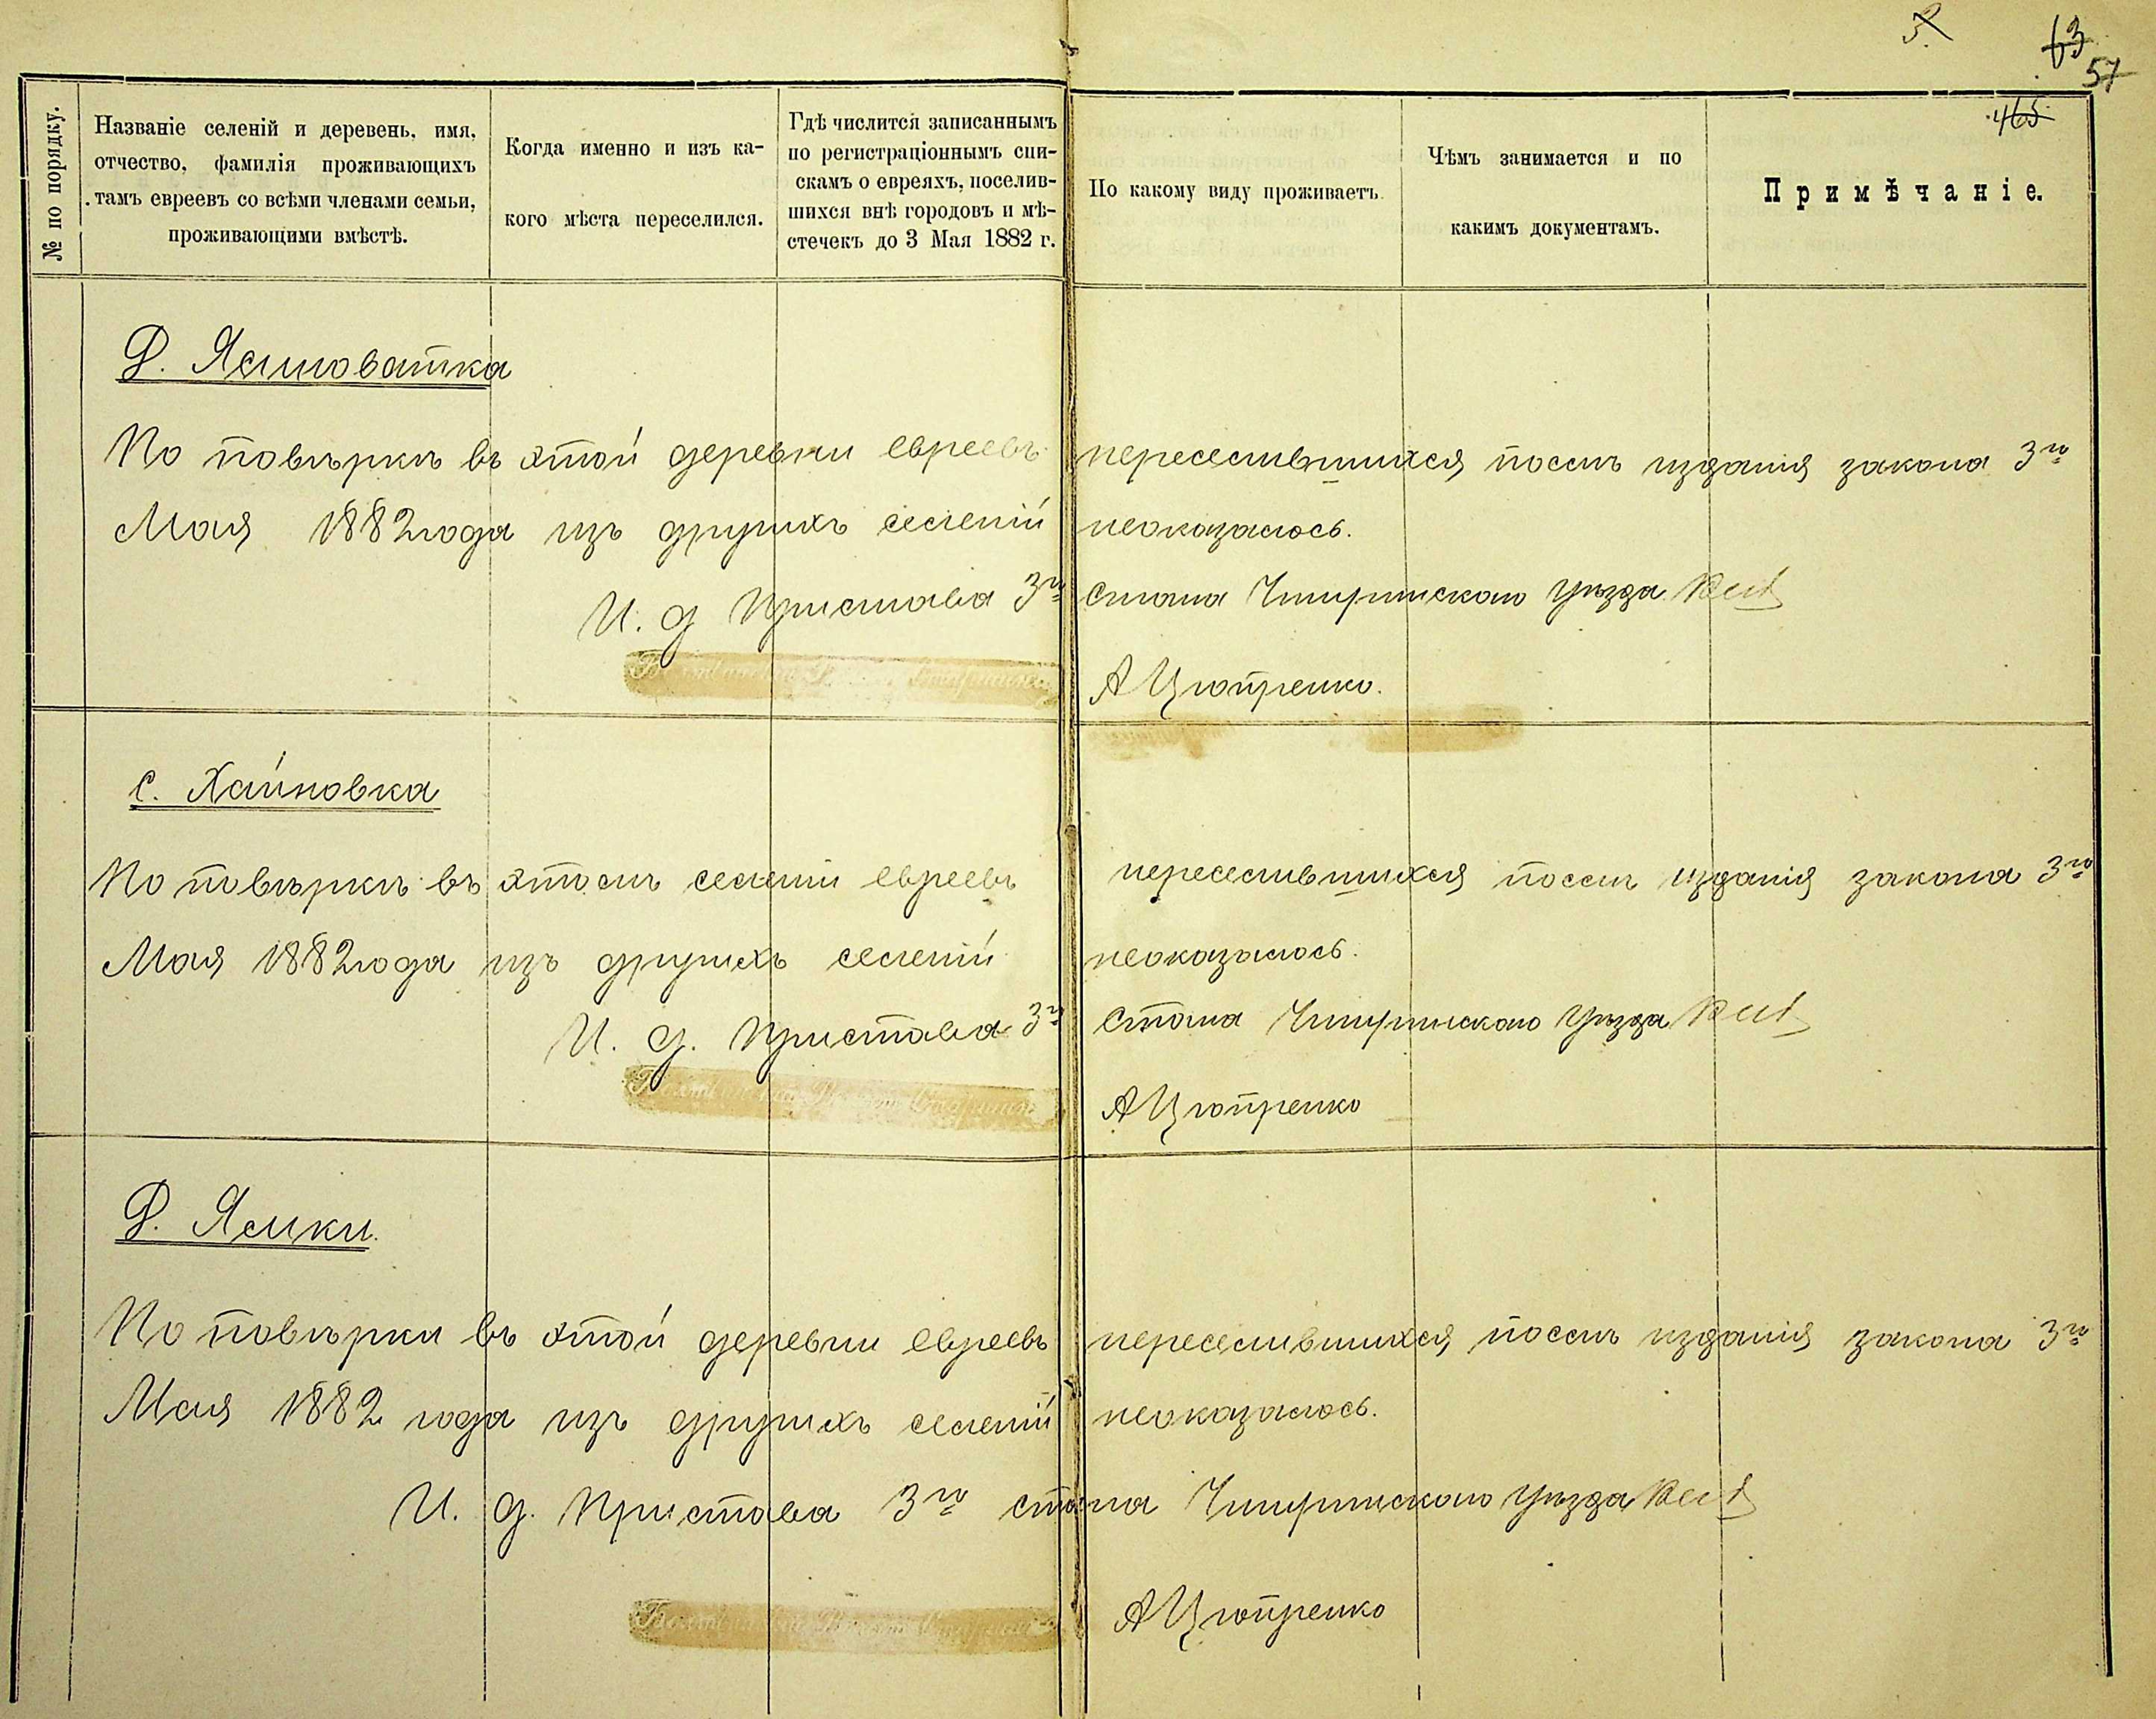 63
57
465
№ по порядку.
Названіе селеній и деревень, имя,
отчество, фамилія проживающихъ
тамъ евреевъ со всѣми членами семьи,
проживающими вмѣстѣ.
Когда именно и изъ ка-
кого мѣста переселился.
Гдѣ числится записаннымъ
по регистраціоннымъ спи-
скамъ о евреяхъ, поселив-
шихся внѣ городовъ и мѣ-
стечекъ до 3 Мая 1882 г.
По какому виду проживаетъ.
Чѣмъ занимается и по
какимъ документамъ.
Примѣчаніе.
Д. Ясиноватка
По повѣркѣ въ этой деревни евреевъ переселившихся послѣ изданія закона 3го
Мая 1882 года изъ другихъ селеній неоказалось.
И. д Пристава 3го стана Чигиринскаго уѣзда
А Цюпренко.
с. Хайновка
По повѣркѣ въ этомъ селеніи евреевъ переселившихся послѣ изданія закона 3го
Мая 1882 года изъ другихъ селеній неоказалось.
И. д. Пристава 3го Стана Чигиринскаго уѣзда
А Цюпренко
Д. Ясики.
По повѣрки въ этой деревни евреевъ переселившихся послѣ изданія закона 3го
Мая 1882 года изъ другихъ селеній неоказалось.
И. д. Пристава 3го стана Чигиринскаго уѣзда
А Цюпренко